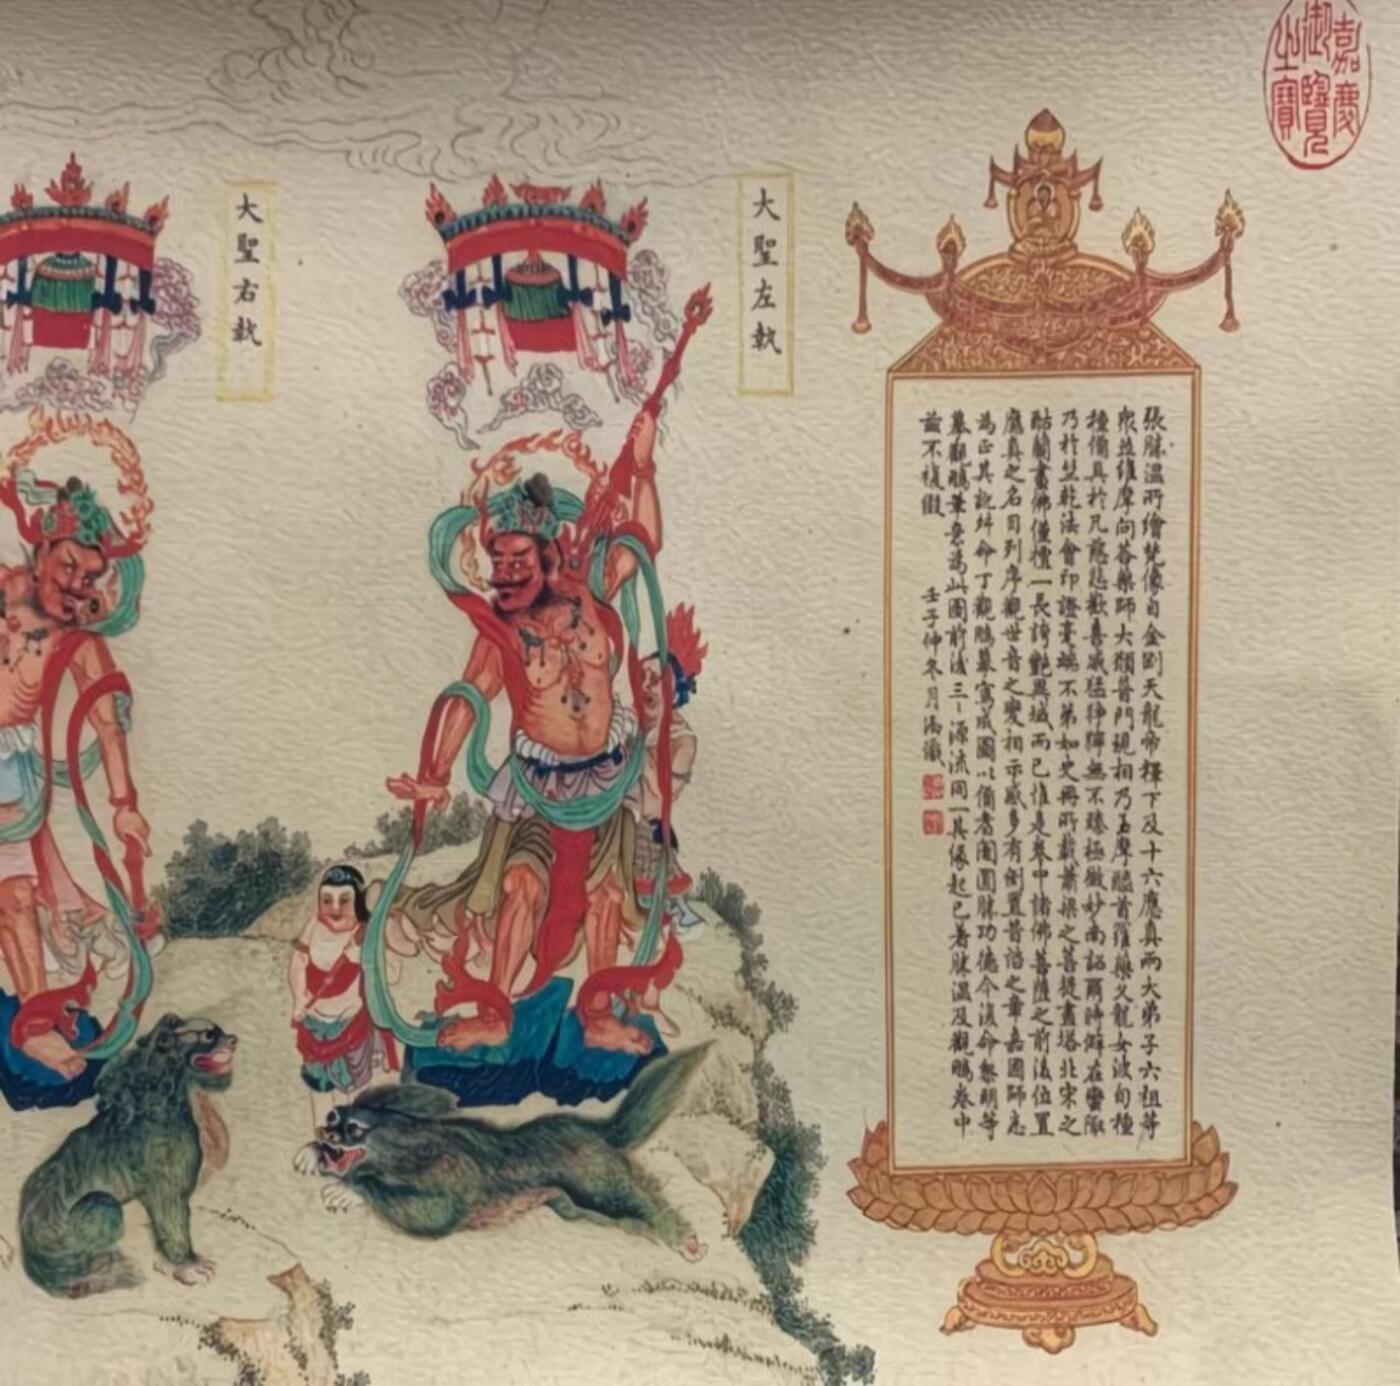 嘉慶御覽之寶
張勝溫所繪梵像自金剛天龍帝釋下及十六應真兩大弟子六祖等
眾並維摩問答藥師大願普門現相乃至摩醯首羅藥叉龍女波旬種
種備具於凡慈悲歡喜威猛猙獰無不臻極微妙南詔爾時僻在蠻陬
乃於竺乾法會印證毫端不第如史冊所載蕭梁之菩提畫塔北宋之
酤蘭畫佛僅擅一長誇艷異域而已惟是卷中諸佛菩薩之前後位置
應真之名目列序觀世音之變相示感多有倒置昔諮之章嘉國師悉
為正其訛舛命丁觀鵬摹寫成圖以備香闍圓功德今復命黎明等
摹觀鵬筆意為此圖前後三源流同一其緣起已著勝溫及觀鵬卷中
茲不復綴 壬子仲冬月識
大聖左執
大聖右執